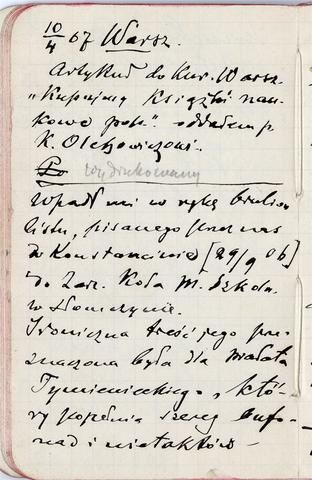 10/4 07 Warsz.
Artykuł do Kur. Warsz.
"Kupujmy książki nau-
kowe pols." oddałem p.
K. Olchowiczowi.
wydrukowany
Wpadł mi w rękę brulion
listu, pisanego przez nas
do Konstancina [29/9 06]
do Zarz. Koła M. Szkoln.
w
Ironiczna treść jego prze-
znaczona była dla
Tymienieckiego, "któ-
ry popełnia szereg bufo-
nad i nietaktów –